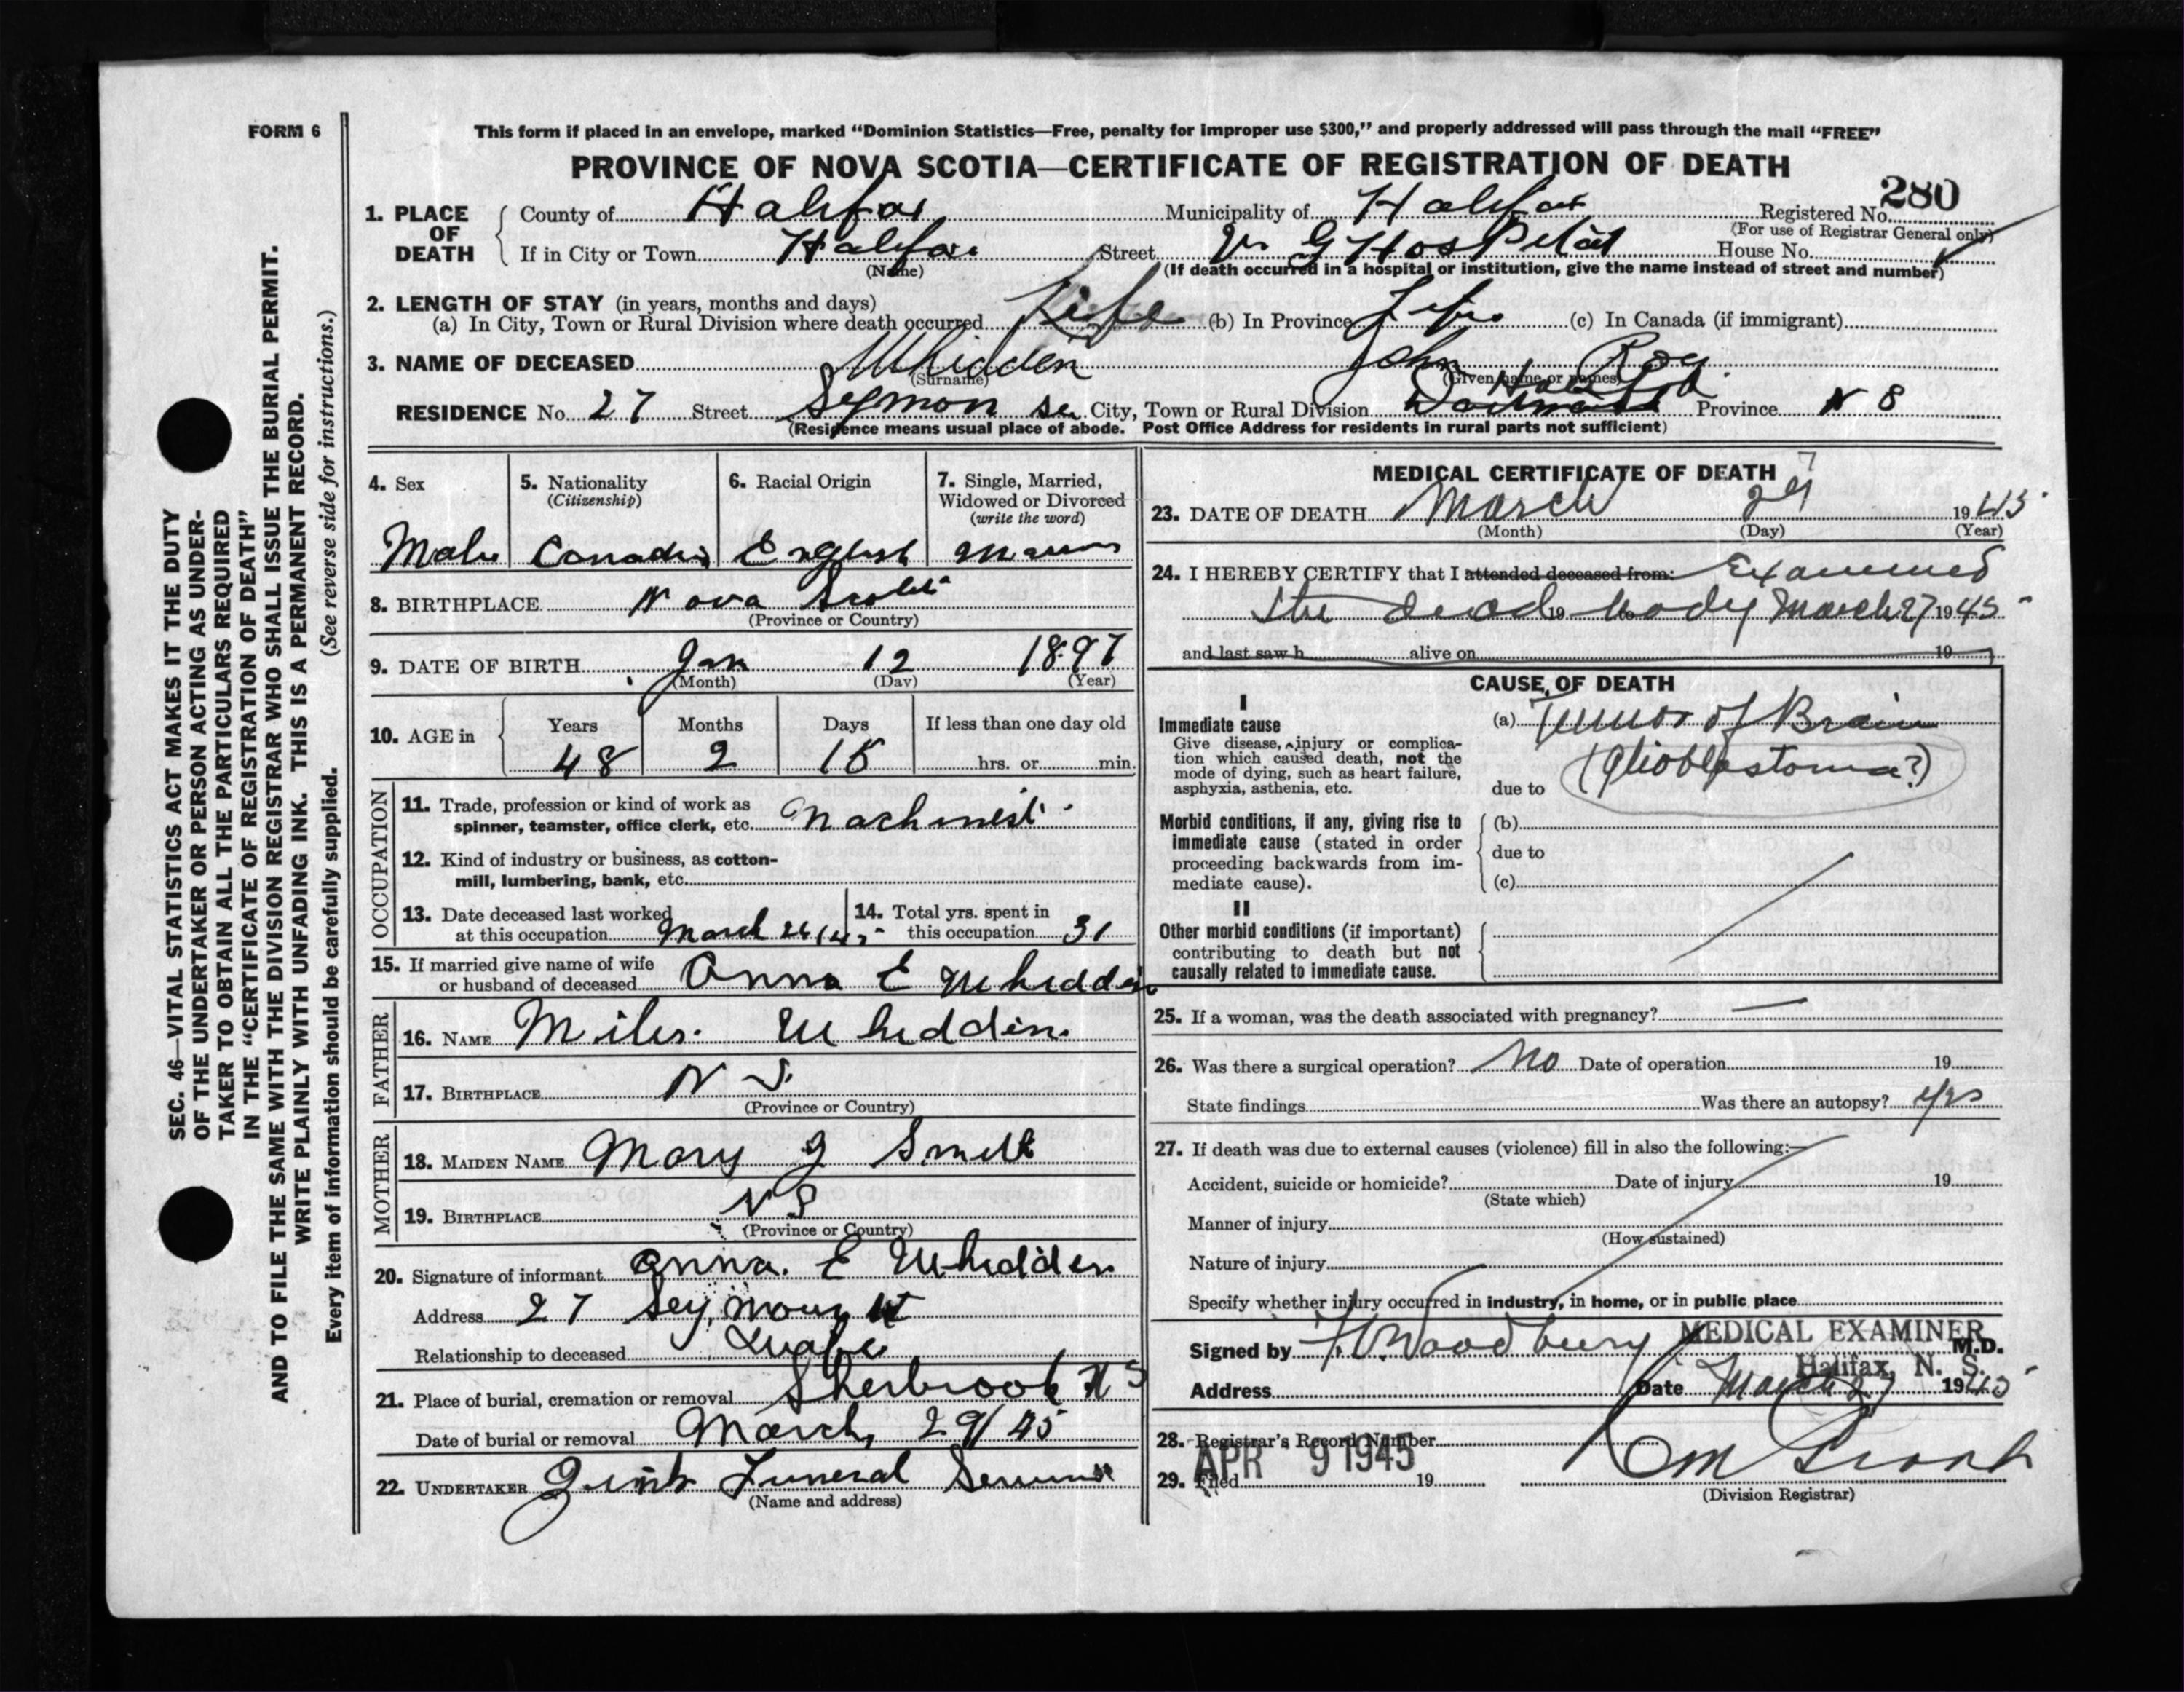 FORM 6
This form if placed in an envelope, marked “Dominion Statistics—Free, penalty for improper use $300,” and properly addressed will pass through the mail “FREE”
PROVINCE OF NOVA SCOTIA—CERTIFICATE OF REGISTRATION OF DEATH
280
1. PLACE OF DEATH
County of Halifax Municipality of Halifax Registered No.
(For use of Registrar General only)
If in City or Town Halifax Street V G Hospital House No.
(Name) (If death occurred in a hospital or institution, give the name instead of street and number)
2. LENGTH OF STAY (in years, months and days)
(a) In City, Town or Rural Division where death occurred Life (b) In Province Life (c) In Canada (if immigrant)
3. NAME OF DECEASED Whidden John Roy
(Surname) (Given name or names)
RESIDENCE No. 27 Street City, Town or Rural Division Province N S
(Residence means usual place of abode. Post Office Address for residents in rural parts not sufficient)
4. Sex
Male
5. Nationality
(Citizenship)
6. Racial Origin
English
7. Single, Married,
Widowed or Divorced
(write the word)
8. BIRTHPLACE Nova Scotia
(Province or Country)
9. DATE OF BIRTH Jan 12 1897
(Month) (Day) (Year)
10. AGE in
Years Months Days If less than one day old
48 2 15 hrs. or min.
OCCUPATION
11. Trade, profession or kind of work as
spinner, teamster, office clerk, etc. Machinest
12. Kind of industry or business, as cotton-
mill, lumbering, bank, etc.
13. Date deceased last worked
at this occupation March 26/45
14. Total yrs. spent in
this occupation 31
15. If married give name of wife
or husband of deceased Anna E Whidden
FATHER
16. NAME Miles Whidden
17. BIRTHPLACE N S.
(Province or Country)
MOTHER
18. MAIDEN NAME Mary J
19. BIRTHPLACE N S
(Province or Country)
20. Signature of informant Anna. E Whidden
Address 27 Seymour St
Relationship to deceased Wife
21. Place of burial, cremation or removal Sherbrook N S
Date of burial or removal March, 29/45
22. UNDERTAKER Funeral
(Name and address)
MEDICAL CERTIFICATE OF DEATH
23. DATE OF DEATH March 27 1945
(Month) (Day) (Year)
24. I HEREBY CERTIFY that I attended deceased from: Examined
the dead 19 body to March 27 1945
and last saw h alive on 19
CAUSE OF DEATH
I
Immediate cause
Give disease, injury or complica-
tion which caused death, not the
mode of dying, such as heart failure,
asphyxia, asthenia, etc.
(a) Tumor of Brain
due to (glioblastoma?)
Morbid conditions, if any, giving rise to
immediate cause (stated in order
proceeding backwards from im-
mediate cause).
(b)
due to
(c)
II
Other morbid conditions (if important)
contributing to death but not
causally related to immediate cause.
25. If a woman, was the death associated with pregnancy? —
26. Was there a surgical operation? No Date of operation 19
State findings Was there an autopsy? yes
27. If death was due to external causes (violence) fill in also the following:—
Accident, suicide or homicide? Date of injury 19
(State which)
Manner of injury
(How sustained)
Nature of injury
Specify whether injury occurred in industry, in home, or in public place
Signed by Woodbury MEDICAL EXAMINER M.D.
Halifax, N. S.
Address Date March 27 1945
28. Registrar's Record Number
29. Filed 19 APR 9 1945
(Division Registrar)
SEC. 46—VITAL STATISTICS ACT MAKES IT THE DUTY
OF THE UNDERTAKER OR PERSON ACTING AS UNDER-
TAKER TO OBTAIN ALL THE PARTICULARS REQUIRED
IN THE “CERTIFICATE OF REGISTRATION OF DEATH”
AND TO FILE THE SAME WITH THE DIVISION REGISTRAR WHO SHALL ISSUE THE BURIAL PERMIT.
WRITE PLAINLY WITH UNFADING INK. THIS IS A PERMANENT RECORD.
Every item of information should be carefully supplied. (See reverse side for instructions.)